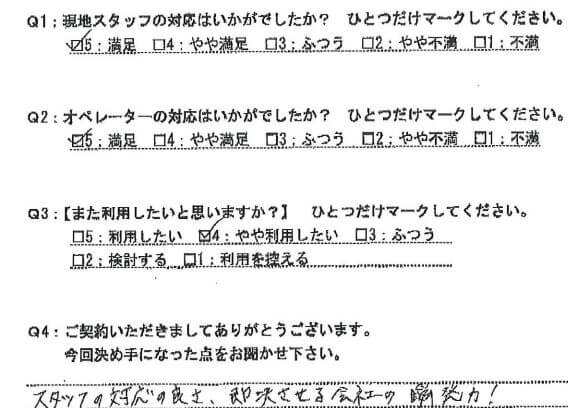 Q1：現地スタッフの対応はいかがでしたか？　ひとつだけマークしてください。
☑5：満足　□4：やや満足　□3：ふつう　□2：やや不満　□1：不満
Q2：オペレーターの対応はいかがでしたか？　ひとつだけマークしてください。
☑5：満足　□4：やや満足　□3：ふつう　□2：やや不満　□1：不満
Q3：【また利用したいと思いますか？】　ひとつだけマークしてください。
□5：利用したい　☑4：やや利用したい　□3：ふつう
□2：検討する　□1：利用を控える
Q4：ご契約いただきましてありがとうございます。
今回決め手になった点をお聞かせ下さい。
スタッフの対応の良さ、即決させる会社の 力！